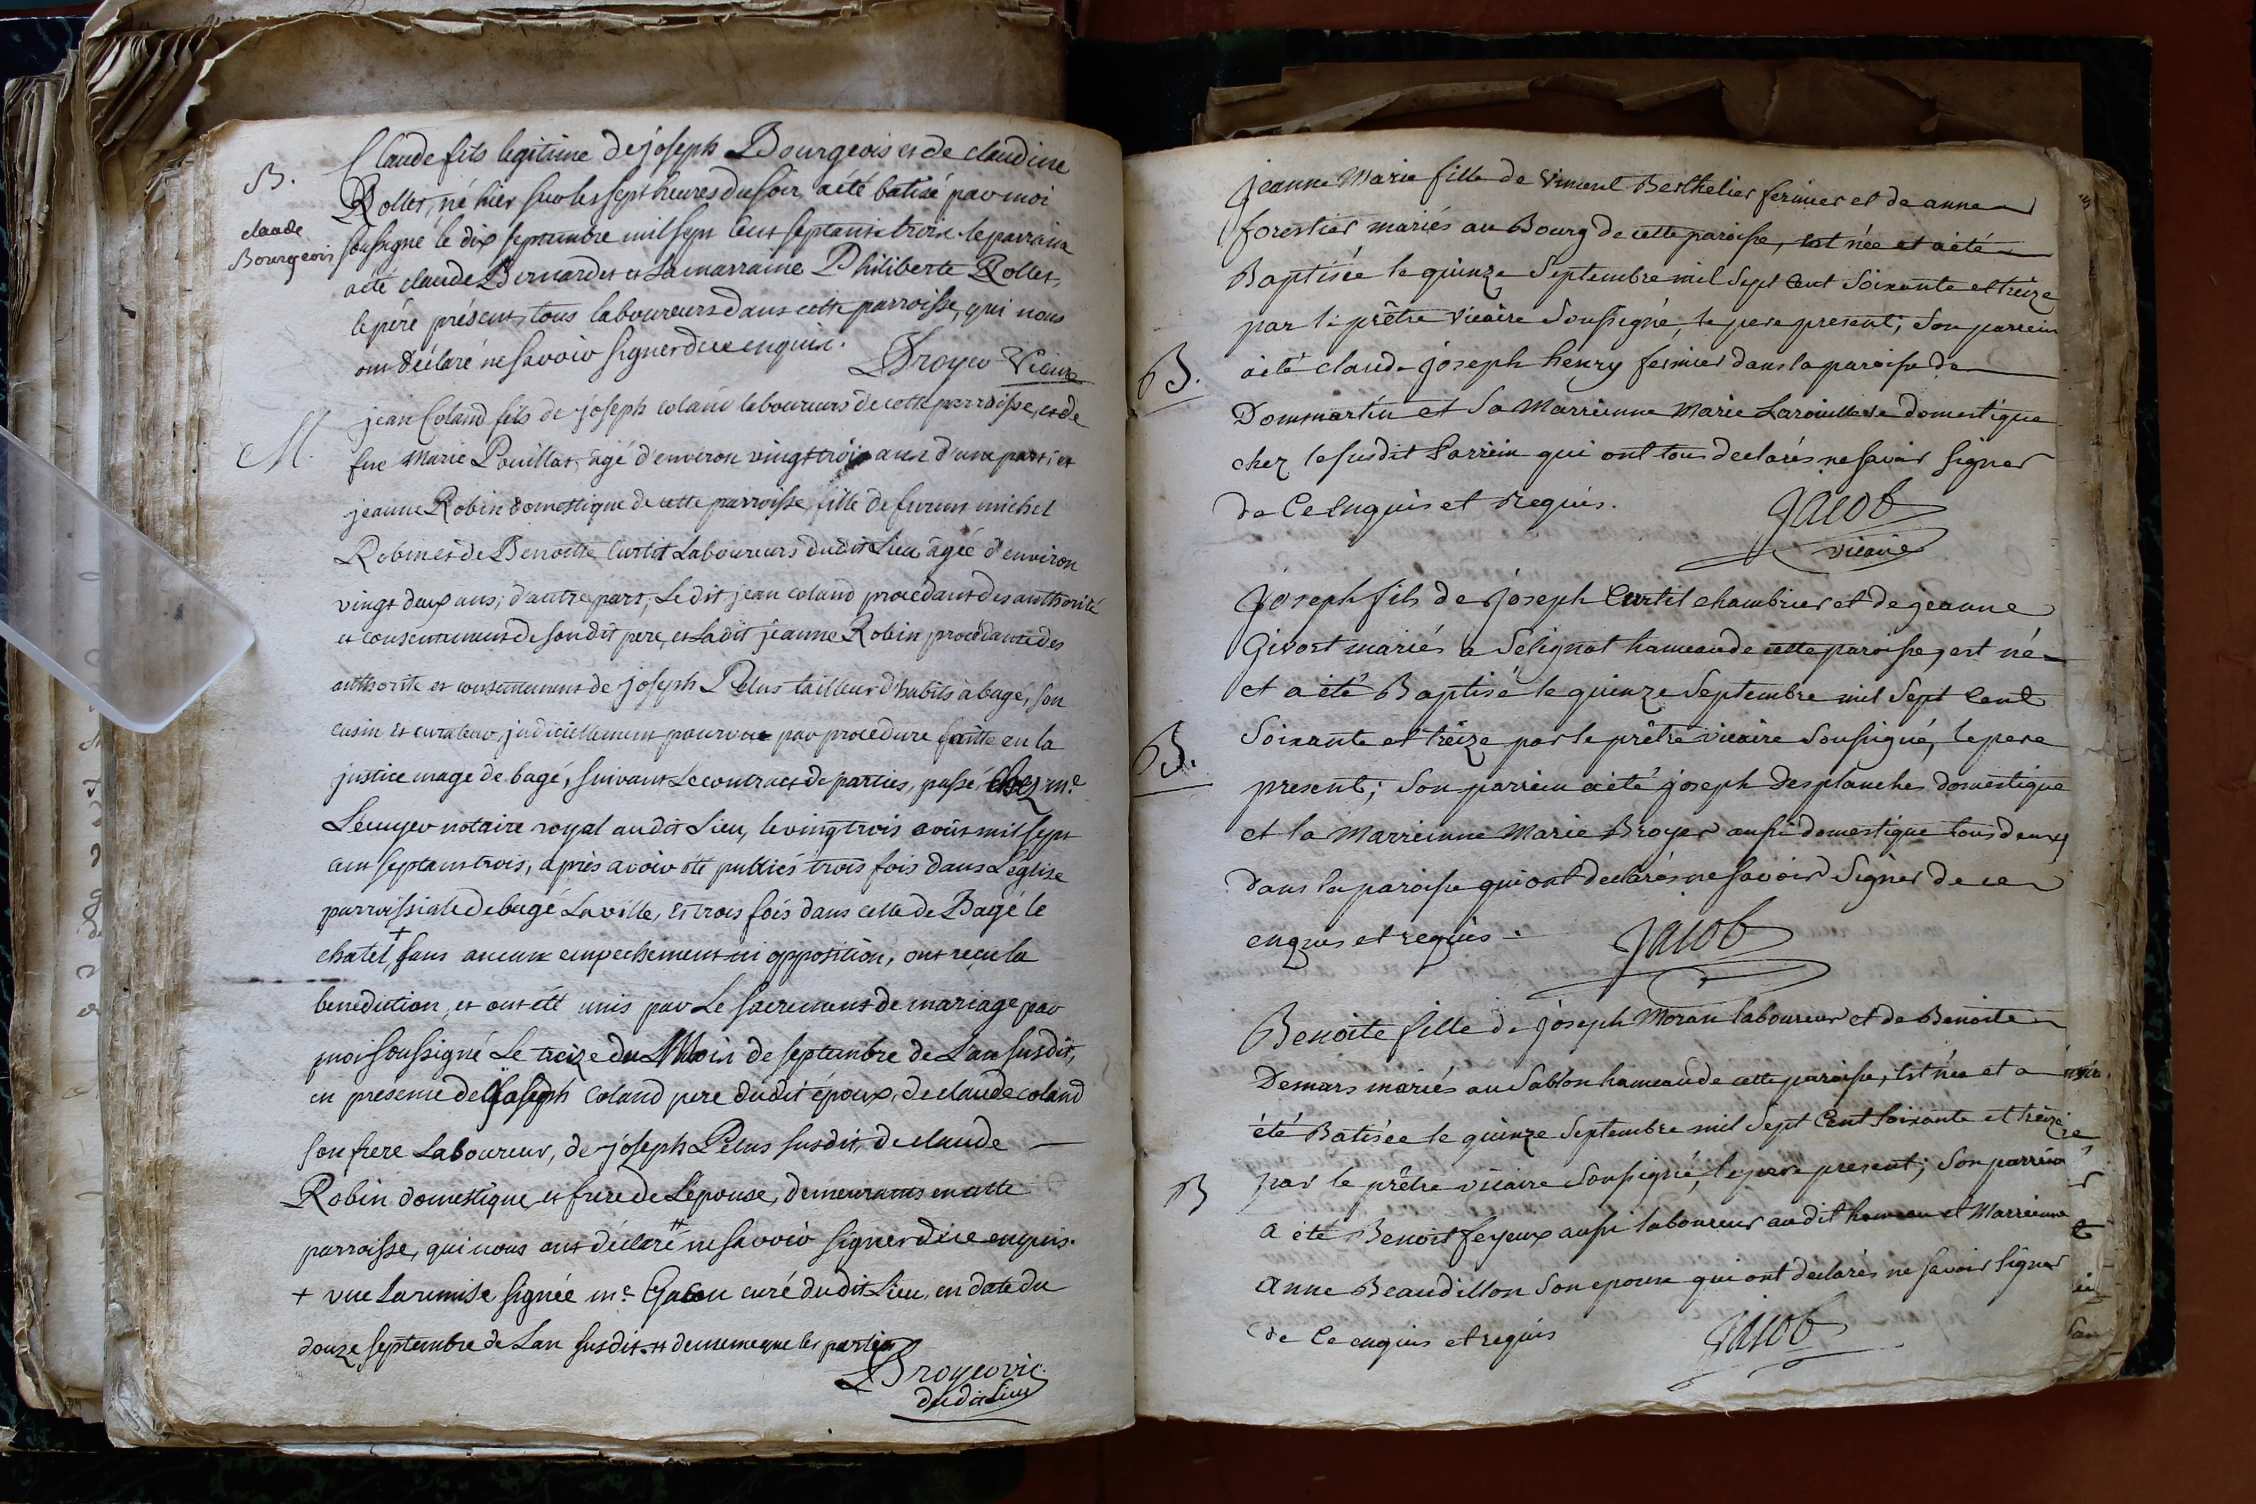 B.
claude
Bourgeois
Claude fils legitime de joseph Bourgeois et de claudine
Rollet, né hier sur les sept heures du soir a été batisé par moi
soussigné le dix septembre mil sept cent septante trois. le parrain
a été claude Bernardet et La marraine Philiberte Rollet,
le pére présent, tous laboureurs dans cette parroisse, qui nous
ont déclaré ne savoir signer de ce enquis.
Broyer Vicaire
M.
jean Coland fils de joseph coland laboureurs de cette parroisse, et de
fue Marie Pouillat, âgé d'environ vingt trois ans d'une part; et
jeanne Robin domestique de cette parroisse, fille de furent michel
Robin et de Benoitte Curtil Laboureurs dudit Lieu âgée d'environ
vingt deux ans; d'autre part; Le dit jean coland procedant des authorité
et consentement de son dit pere, et La dit jeanne Robin procedante des
authorité et consentement de joseph Pelus tailleur d'habits à bagé, son
cusin et curateur, judiciellement pourvue par procedure faitte en la
justice mage de bagé, suivant Le contract de parties, passé chez me
Lecuyer notaire royal audit Lieu, le vingt trois août mil sept
cent septante trois, après avoir été publiés trois fois dans L'église
parroissiale de bagé La ville, et trois fois dans celle de Bagé le
chatel, + sans aucun empechement ni opposition, ont reçu la
benediction, et ont été unis par Le sacrement de mariage par
moi soussigné Le treize du Mois de septembre de L'an susdit,
en présence de Joseph Coland pere dudit époux, de claude coland
son frere Laboureur, de joseph Pelus susdit, de claude
Robin domestique, et frere de L'epouse, demeurants en cette
parroisse, qui nous ont déclaré # ne savoir signer de ce enquis.
+ vue La remise signée me Gabou curé dudit Lieu, en date du
douze septembre de L'an susdit. # de meme que les parties
Broyer vic.
dudit Lieu
B.
Jeanne Marie fille de Vincent Berthelier fermier et de anne
forestier mariés au Bourg de cette paroisse, est née et a été
Baptisée le quinze Septembre mil Sept Cent Soixante et treize
par le prêtre Vicaire Soussigné, le pere present; Son parrein
a été claude joseph henry fermier dans la paroisse de
Dommartin et Sa Marreinne Marie domestique
chez le susdit Parrein qui ont tous declarés ne savoir Signer
de Ce Enquis et Requis.
Jacob
vicaire
B.
Joseph fils de joseph Curtil chambrier et de jeanne
Givort mariés a Sélignat hameau de cette paroisse, est né
et a été Baptisé le quinze Septembre mil Sept Cent
Soixante et treize par le prêtre vicaire Soussigné, le pere
present; Son parrein a été joseph Desplanche domestique
et la Marreinne Marie Broyer aussi domestique tous deux
dans la paroisse qui ont declarés ne savoir Signer de ce
enquis et requis.
Jacob
B
Benoite fille de joseph Moran laboureur et de Benoite
Demars mariés au Sablon hameau de cette paroisse, est née et a
été Batisée le quinze Septembre mil Sept Cent Soixante et treize
par le prêtre vicaire Soussigné, le pere present; Son parrein
a été Benoit feyeux aussi laboureur audit hameau et Marreinne
Anne Beaudillon Son epouse qui ont declarés ne savoir Signer
de Ce enquis et requis
Jacob